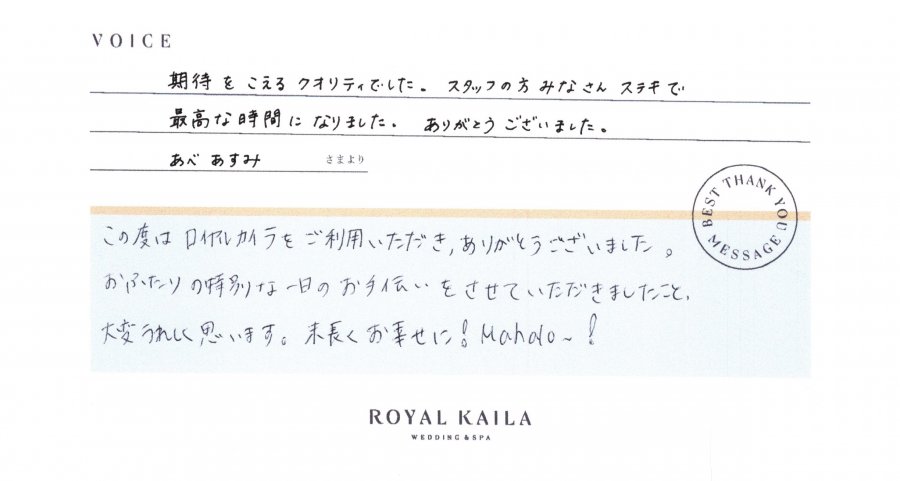 VOICE
期待を こえる クオリティでした。 スタッフの方 みなさん ステキで
最高な時間に なりました。 ありがとう ございました。
あべ あすみ さまより
BEST THANK YOU MESSAGE
この度は ロイヤルカイラを ご利用いただき,ありがとうございました。
おふたりの特別な一日の お手伝いを させていただきましたこと,
大変うれしく思います。末長くお幸せに! Mahalo~!
ROYAL KAILA
WEDDING & SPA